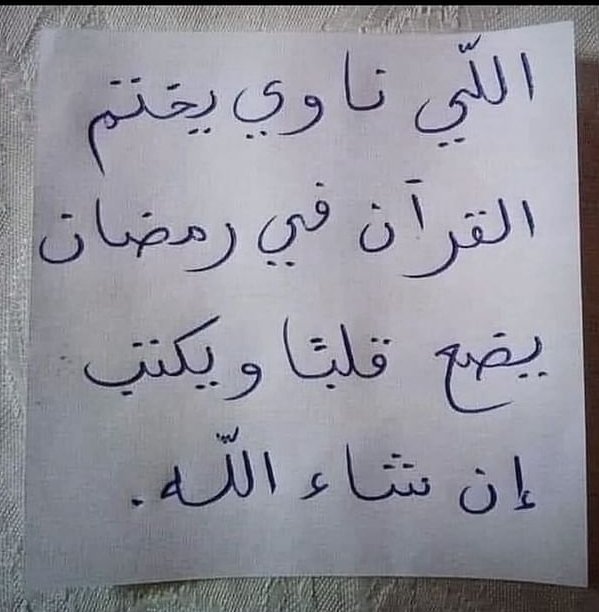 اللّي ناوي يختم
القرآن في رمضان
يضع قلبًا ويكتب
إن شاء اللّه.